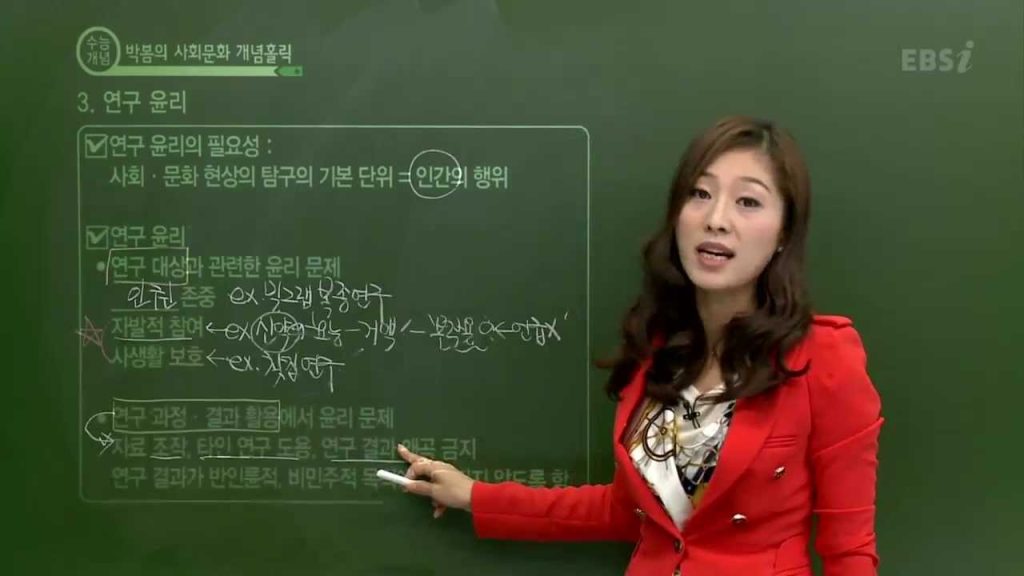 수능
개념
박봄의 사회문화 개념홀릭
EBSi
3. 연구 윤리
연구 윤리의 필요성 :
사회 · 문화 현상의 탐구의 기본 단위 = 인간의 행위
연구 윤리
연구 대상과 관련한 윤리 문제
인권 존중 ex 밀그램 복종연구
자발적 참여 ← ex 신약의 효능 - 거액 - 부작용 ← 언급X
사생활 보호 ← ex. 킨제이 연구
연구 과정 · 결과 활용에서 윤리 문제
자료 조작, 타인 연구 도용, 연구 결과 왜곡 금지
연구 결과가 반인륜적, 비민주적 않도록 함